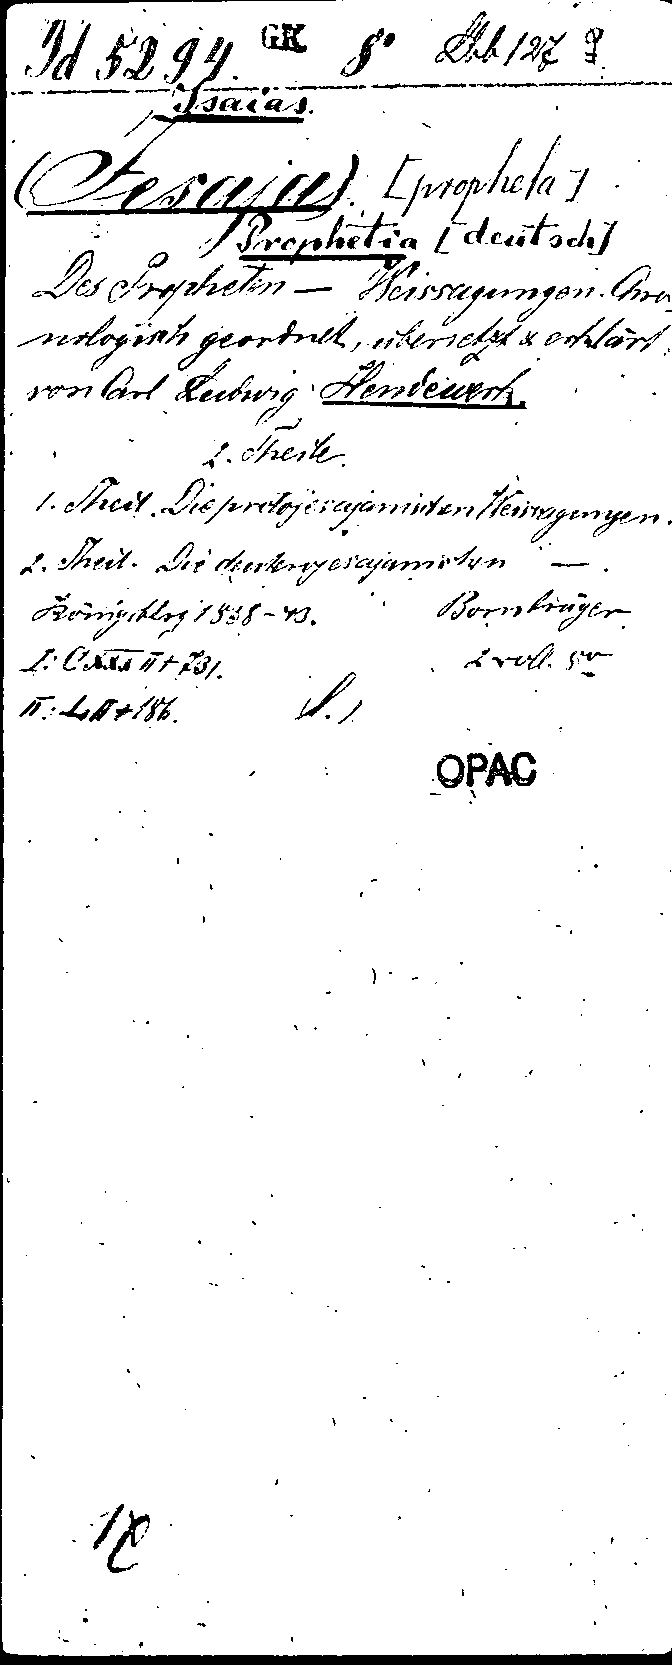 Id 5294. GK 8° Lbb 127
Isaias.
(Jesaja). [propheta]
Prophetia [deutsch]
Des Propheten — Weissagungen. Chro-
nologisch geordnet, übersetzt & erklärt
von Carl Ludwig Hendewerk.
2. Theile.
1. Theil. Die protojesajanischen Weissagungen.
2. Theil. Die deuterojesajanischen — .
Königsberg 1838-43. Bornträger
I: CXXXII + 731. 2 voll. 8vo
II: LII + 186. (S.)
OPAC